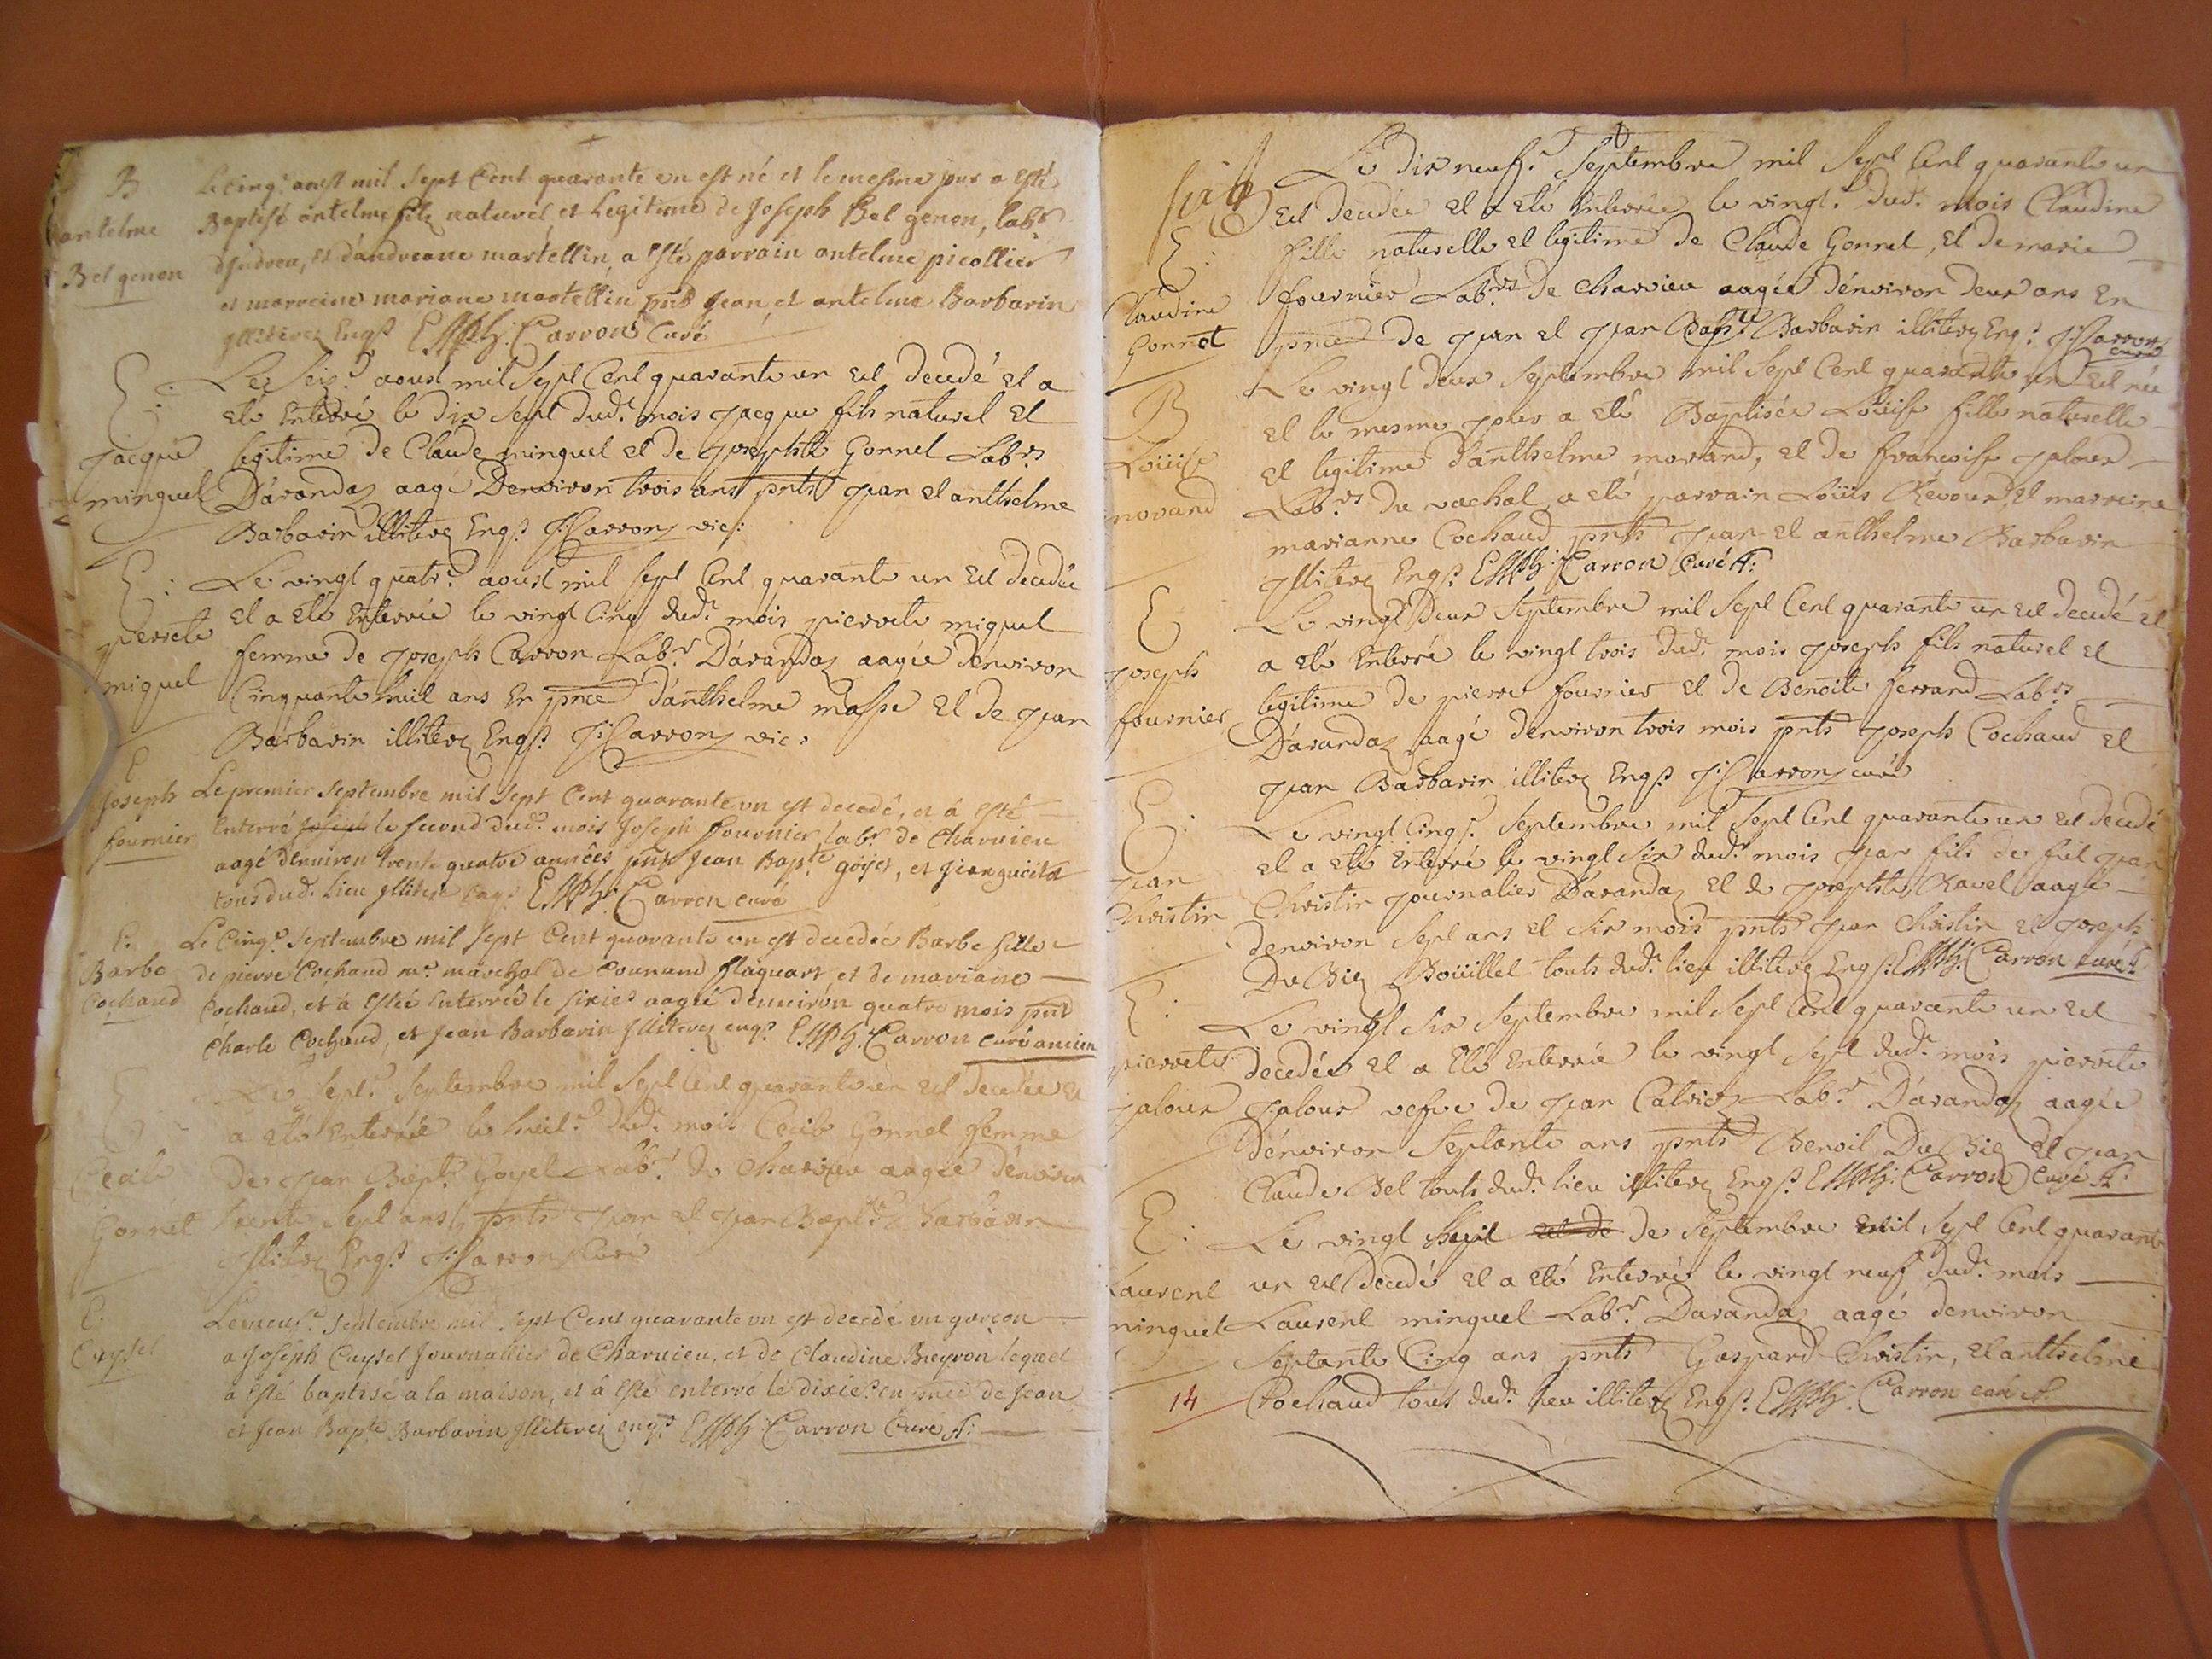 B
antelme
Bel genon
Le cinq.e aoust mil sept Cent quarante un est né et le mesme jour a esté
Baptisé antelme fils naturel et Legitime de Joseph Bel genon, lab.r
d'Indrieu, et d'andreane martellin, a esté parrain antelme picollier
et marreine mariane martellin pnts Jean, et antelme Barbarin
Illiterez Enq.s Carron Curé
E:
Jacque
minguet
Le Seiz.e aoust mil Sept Cent quarante un est decedé et a
eté Enterré le dix sept dud.t mois Jacque fils naturel et
legitime de Claude minguet et de Josephte Gonnet Lab.rs
D'arandaz aagé Denviron trois ans pnts Jean et anthelme
Barbarin illiterez Enq.s J: Carron vic:
E:
pierrete
miguet
Le vingt quatr.e aoust mil sept Cent quarante un est decedée
et a eté Enterrée le vingt cinq dud.t mois pierrete miguet
femme de Joseph Carron Lab.r D'arandaz aagée denviron
Cinquante huit ans En pnce d'anthelme masse et de Jean
Barbarin illiterez Enq.s J: Carron vic:
E
Joseph
fournier
Le premier Septembre mil sept Cent quarante un est decedé, et á esté
Enterré Joseph le second dud.t mois Joseph fournier lab.r de Charuieu
aagé denuiron trente quatre années pnts Jean Bap.te goyet, et Jean
tous dud.t Lieu Illiterez Enq.s Carron curé
E.
Barbe
Cochaud
Le Cinq.e Septembre mil sept Cent quarante un est decedée Barbe fille
de pierre Cochaud m.e marechal de et de mariane
Cochaud, et á estée Enterrée le sixie.e aagée denuiron quatre mois pnt
Charle Cochaud, et Jean Barbarin Illiterez enq.s Carron curé ancien
E
Cecile
Gonnet
Le Sept.e Septembre mil Sept Cent quarante un est decedée et
a eté Enterrée le huit.e dud.t mois Cecile Gonnet femme
De Jean Bapt.e Goyet Lab.r de Charvieu aagée d'environ
trente Sept ans, pnts Jean et Jean Bapt.te Barbarin
Illiterez Enq.s J: Carron Curé
E.
Cuyset
Le neuf.e Septembre mil sept Cent quarante un est decedé un garçon
a Joseph Cuyset Journallier de Charuieu, et de Claudine Breyron lequel
a esté baptisé a la maison, et á esté enterré le dixie.e en pnce de Jean
et Jean Bap.te Barbarin Illiterez enq.s Carron Curé A:
E:
Claudine
Gonnet
Le dix neuf.e Septembre mil Sept Cent quarante un
est decedée et a eté Enterrée le vingt.e dud.t mois Claudine
fille naturelle et legitime de Claude Gonnet, et de marie
fournier Lab.rs de Charvieu aagée d'environ deux ans En
pnce de Jean et Jean Bap.te Barbarin illiterez Enq.s J: Carron
curé
B
Loüise
morand
Le vingt deux Septembre mil Sept Cent quarante un est née
et le mesme jour a eté Baptisée Loüise fille naturelle
et legitime d'anthelme morand, et de francoise Jaloux
Lab.rs du vachat, a eté parrain Loüis Revoux, et marreine
marianne Cochaud pnts Jean et anthelme Barbarin
Illiterez Enq.s Carron Curé A:
E
Joseph
fournier
Le vingt Deux Septembre mil Sept Cent quarante un est decedé et
a eté Enterré le vingt trois dud.t mois Joseph fils naturel et
legitime de pierre fournier et de Benoite ferrand Lab.rs
D'arandaz aagé denviron trois mois pnts Joseph Cochaud et
Jean Barbarin illiterez Enq.s J: Carron curé
E:
Jean
Christin
Le vingt Cinq.e Septembre mil Sept Cent quarante un est decedé
et a eté Enterré le vingt six dud.t mois Jean fils de fut Jean
Christin Journalier D'arandaz et de Josephte Ravet aagé
denviron Sept ans et six mois pnts Jean Christin et Joseph
Du Biez Boüillet touts dud.t lieu illiterez Enq.s Carron curé A:
E:
pierrete
Jaloux
Le vingt Six Septembre mil Sept Cent quarante un est
decedée et a eté Enterrée le vingt sept dud.t mois pierrete
Jaloux vefve de Jean Lab.r D'arandaz aagée
D'environ Septante ans pnts Benoit Du Biez et Jean
Claude Bel touts dud.t lieu illiterez Enq.s Carron Curé A:
E:
Laurent
minguet
Le vingt huit est de de Septembre mil Sept Cent quarante
un est decedé et a eté Enterré le vingt neuf dud.t mois
Laurent minguet Lab.r Darandaz aagé denviron
Septante Cinq ans pnts Gaspard Christin, et anthelme
Cochaud tous dud.t lieu illiterez Enq.s Carron curé A.
14